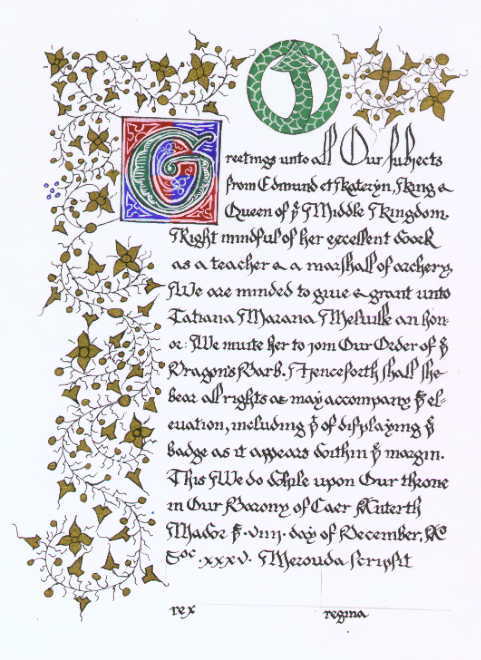 Greetings unto all Our subjects
from Edmund et Kateryn, King &
Queen of ye Middle Kingdom.
Right mindful of her excellent work
as a teacher & a marshall of archery,
We are minded to give & grant unto
Tatiana Marana Melville an hon-
or: We invite her to join Our Order of ye
Dragon's Barb. Henceforth shall she
bear all rights as may accompany ye el-
evation, including yt of displaying ye
badge as it appears within ye margin.
This We do while upon Our throne
in Our Barony of Caer
ye .viij. day of December, A
Soc .xxxv. Merouda scripsit
rex regina